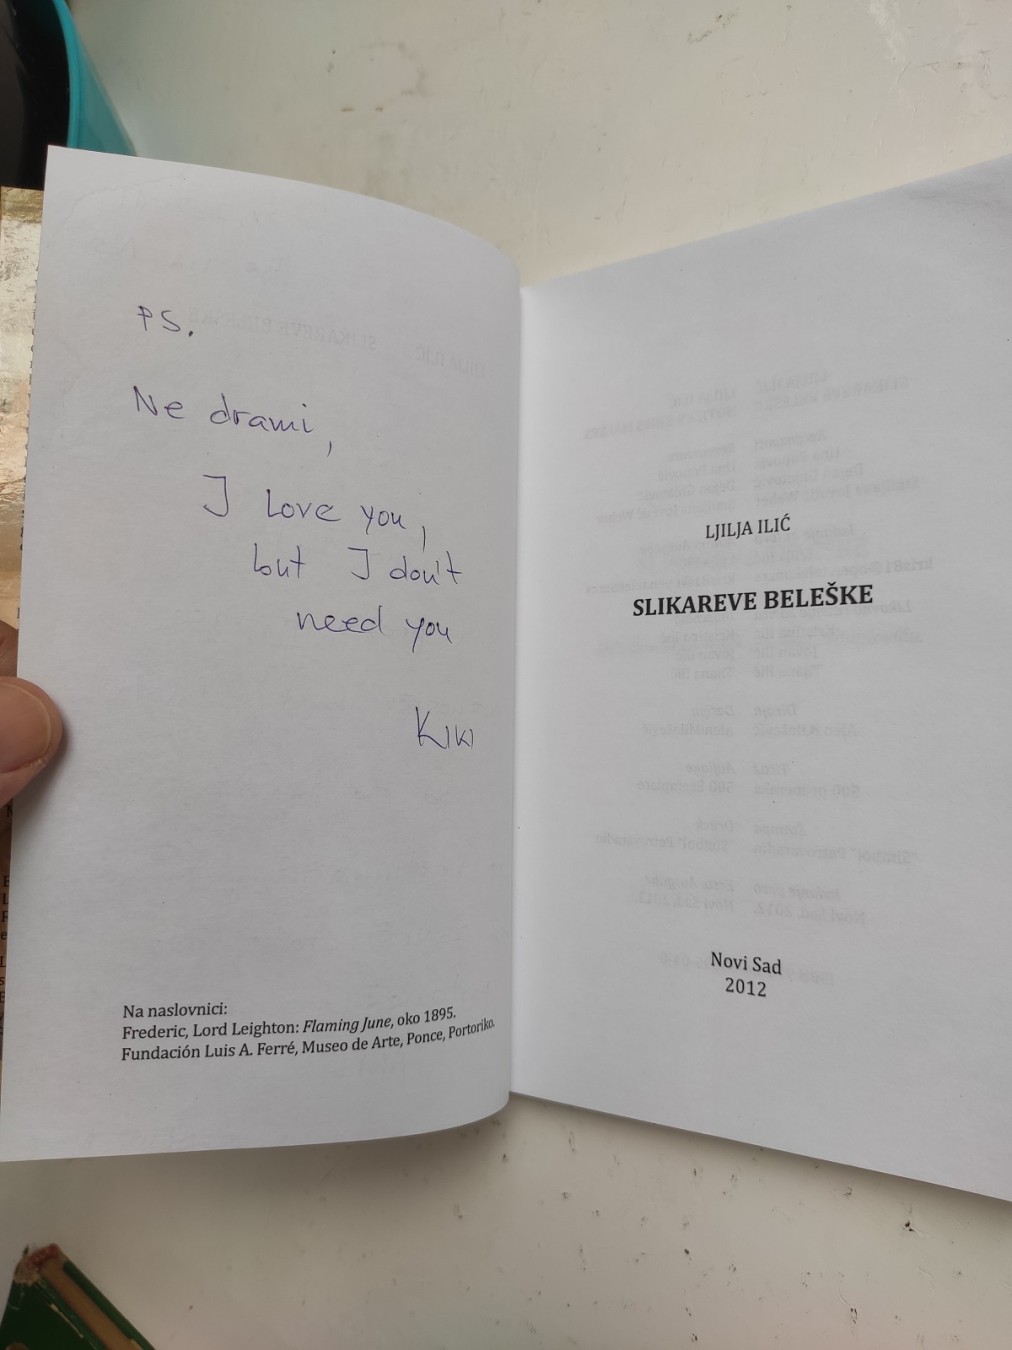 PS.
Ne drami,
I Love you,
but I don't
need you
Kiki
Na naslovnici:
Frederic, Lord Leighton: Flaming June, oko 1895.
Fundación Luis A. Ferré, Museo de Arte, Ponce, Portoriko.
LJILJA ILIĆ
SLIKAREVE BELEŠKE
Novi Sad
2012